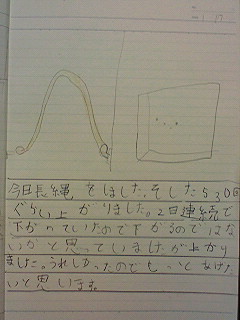 今日長縄をしました。そしたら530回
ぐらい上がりました。2日連続で
下がっていたので下がるのではな
いかと思っていましたが上がり
ました。うれしかったので
いと思います。